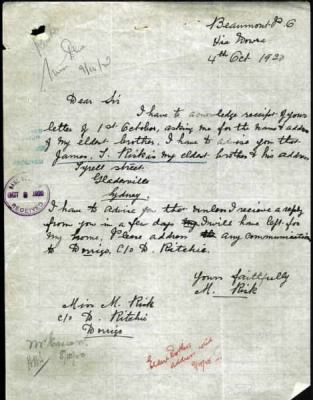 Beaumont P.O
Via Nowra
4th Oct 1920
Dear Sir
I have to acknowledge receipt of your
letter of 1st October, asking me for the name & address
of my eldest brother. I have to advise you that
James. S. Risk is my eldest brother & his address
Tyrell street
Gladesville
Sydney.
I have to advise you that unless I receive a reply
from you in a few days I will have left for
my home, Please address any communication
to Dorrigo, C/o D. Ritchie.
Yours faithfully
M. Risk
Miss M. Risk
C/o D. Ritchie
Dorrigo
OCT 8 1920
RECEIVED